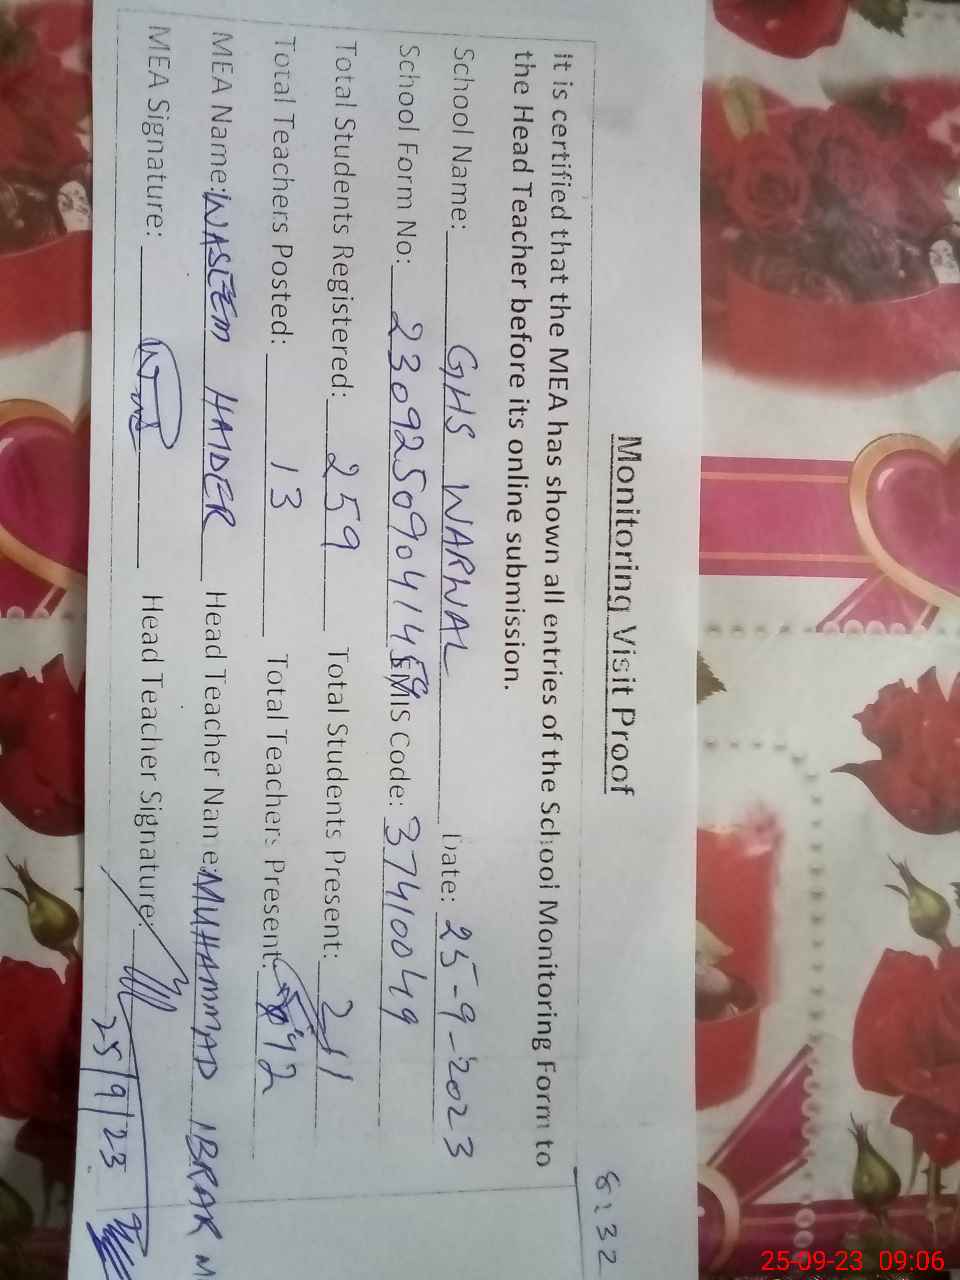 8:32
Monitoring Visit Proof
It is certified that the MEA has shown all entries of the School Monitoring Form to
the Head Teacher before its online submission.
School Name: GHS WARWAL Date: 25-9-2023
School Form No: 2309250904145 EMIS Code: 37410049
Total Students Registered: 259 Total Students Present: 211
Total Teachers Posted: 13 Total Teachers Present: 12
MEA Name: WASEEM HAIDER Head Teacher Name: MUHAMMAD IBRAR M
MEA Signature: Head Teacher Signature:
25/9/23
25-09-23 09:06